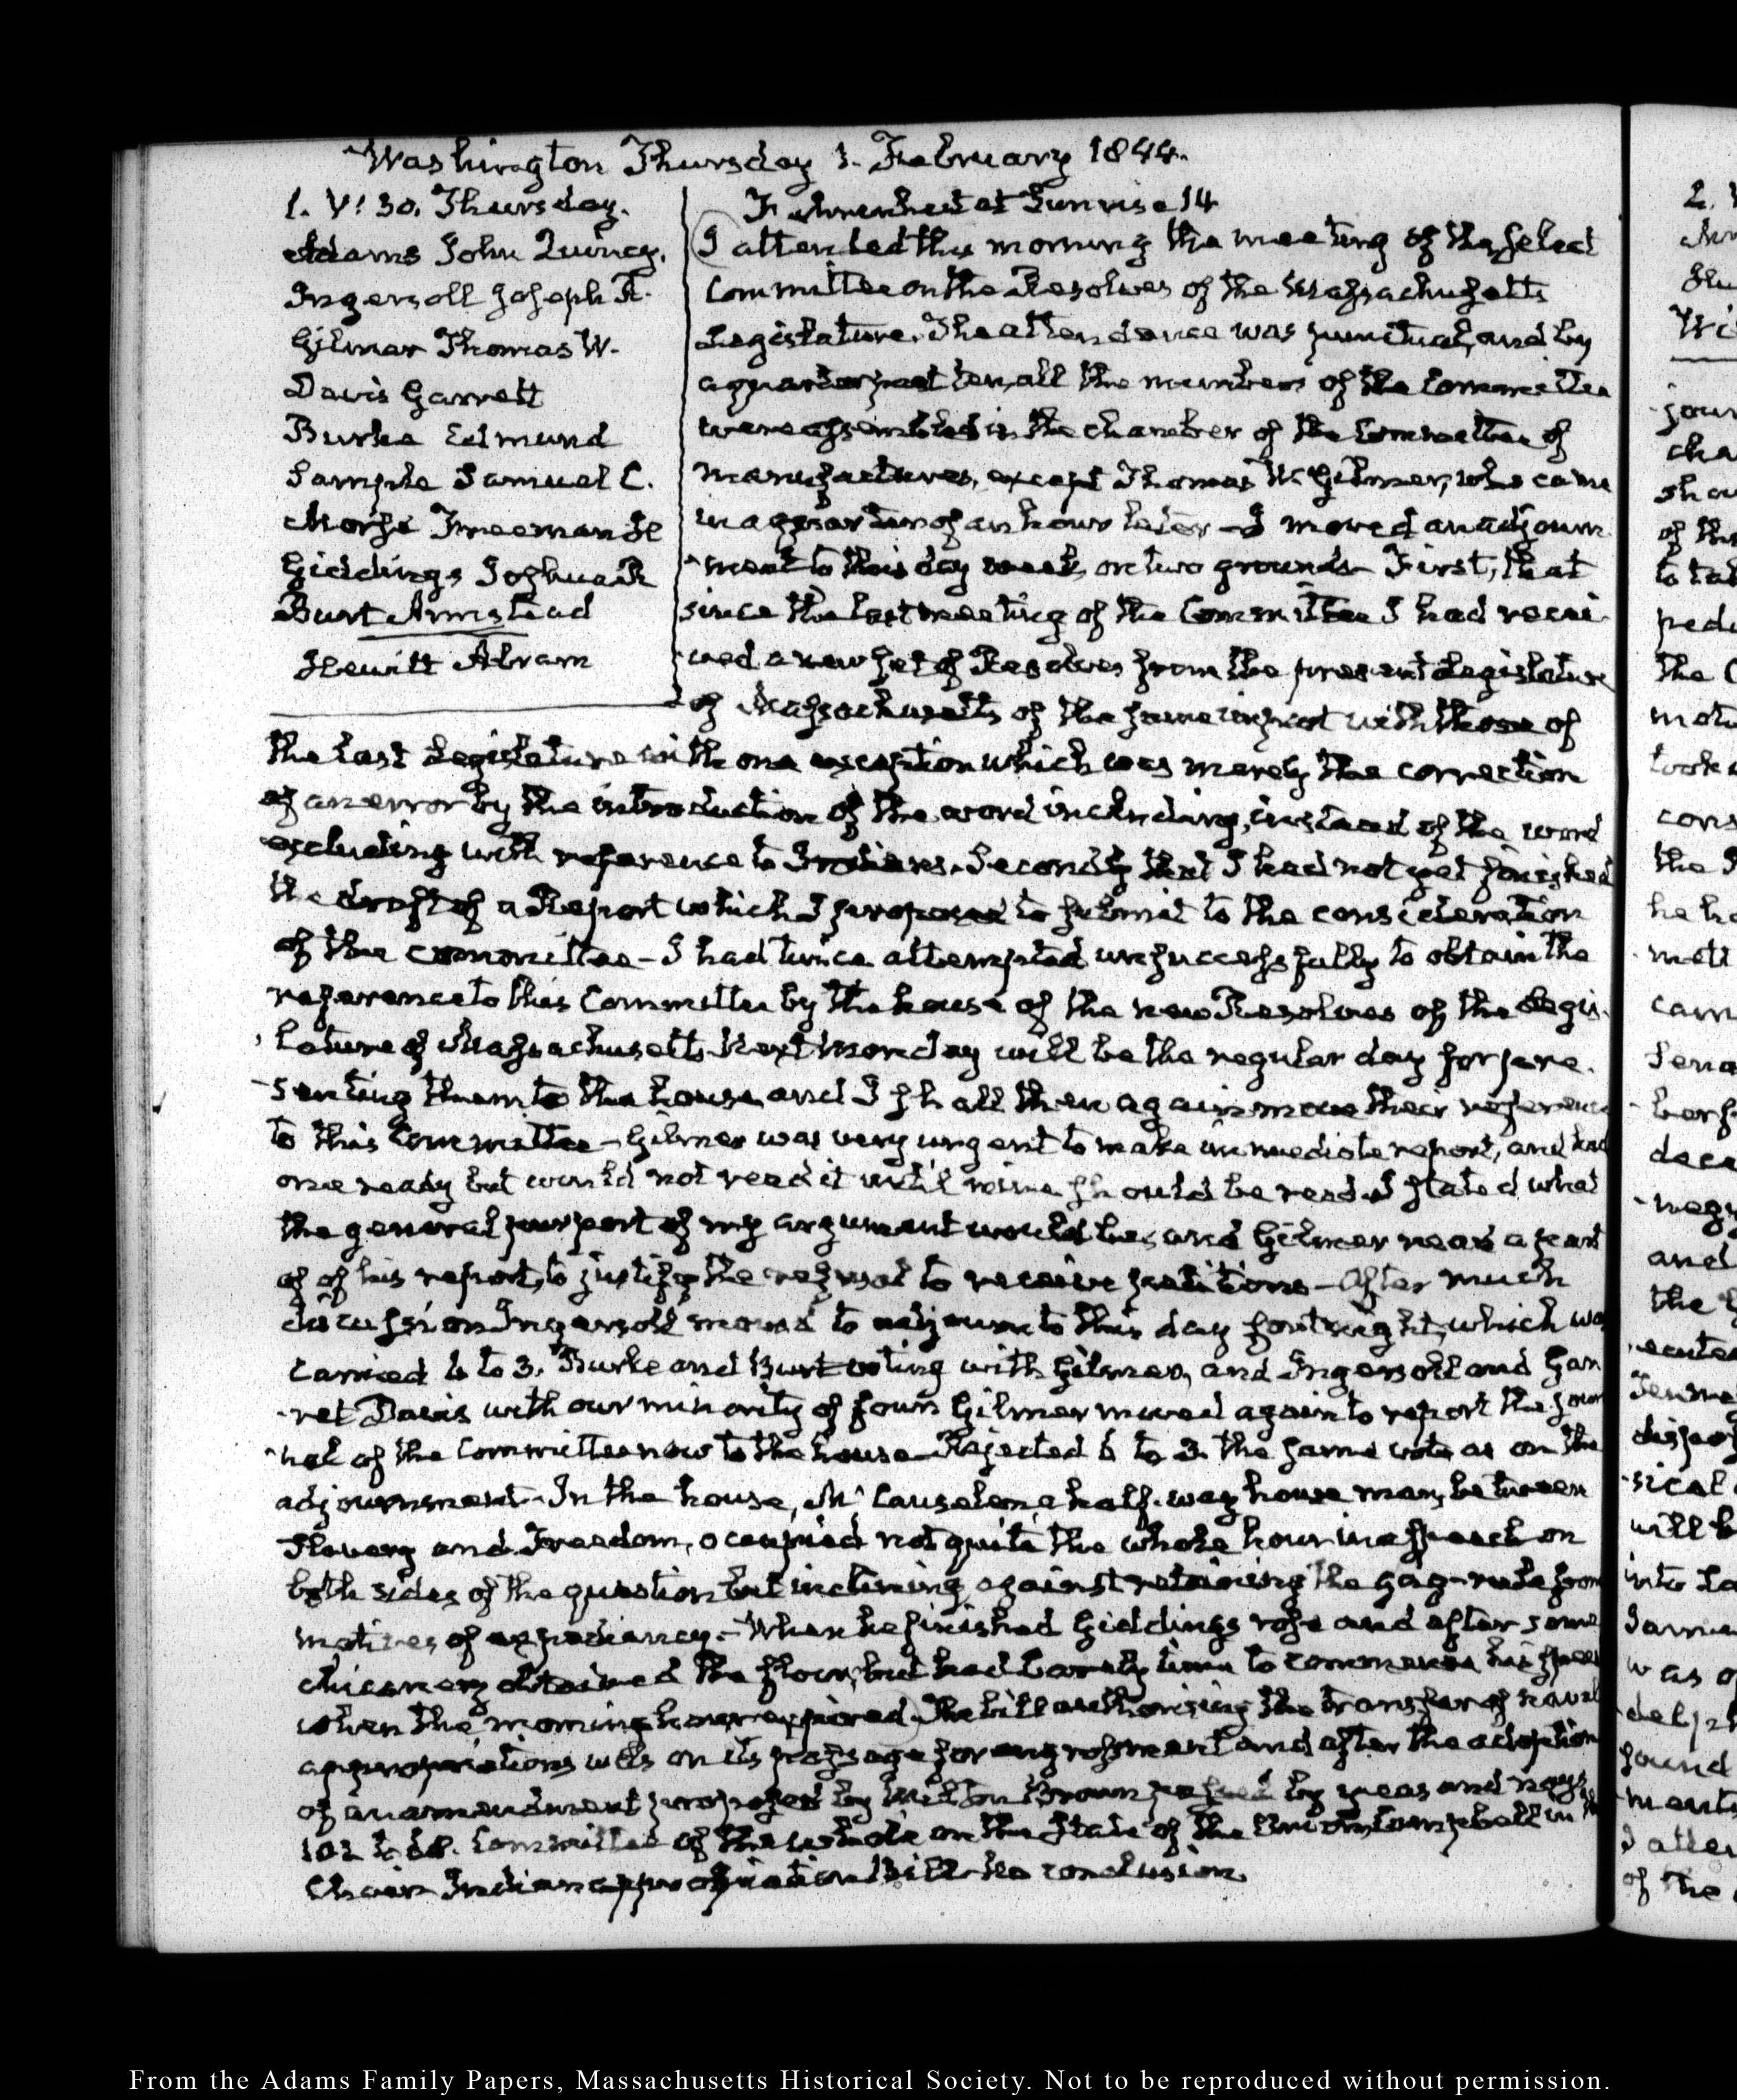 Washington Thursday 1. February 1844.
1. V: 30. Thursday.
Adams John Quincy.
Ingersoll Joseph R.
Gilmer Thomas W.
Davis Garrett
Burke Edmund
Sample Samuel C.
Morse Freeman H
Giddings Joshua R
Burt Armstead
Hewitt Abram
Fahrenheit at Sunrise 14
I attended this morning the meeting of the select
Committee on the Resolves of the Massachusetts
Legislature. The attendance was punctual, and by
a quarter past ten, all the members of the Committee
were assembled in the chamber of the Committee of
Manufactures, except Thomas W. Gilmer, who came
in a quarter of an hour later – I moved an adjourn
-ment to this day week, on two grounds – First, that
since the last meeting of the Committee I had recei
-ved a new set of Resolves from the present Legislature
of Massachusetts of the same import with those of
the last Legislature with one exception which was merely the correction
of an error by the introduction of the word including, instead of the word
excluding with reference to Indians. Secondly that I had not yet finished
the draft of a Report which I proposed to submit to the consideration
of the committee – I had twice attempted unsuccessfully to obtain the
reference to this Committee by the house of the new Resolves of the Legis-
lature of Massachusetts. Next Monday will be the regular day for pre-
-senting them to the house and I shall then again move their reference
to this Committee – Gilmer was very urgent to make immediate report, and had
one ready but would not read it until mine should be read. I stated what
the general purport of my argument would be, and Gilmer read a part
of of his report, to justify the refusal to receive petitions – After much
discussion Ingersoll moved to adjourn to this day fortnight, which was
carried 6 to 3. Burke and Burt voting with Gilmer, and Ingersoll and Gar
-ret Davis with our minority of four. Gilmer moved again to report the jour
-nal of the Committee now to the house – Rejected 6 to 3. the same vote as on the
adjournment – In the house, McCauslen a half-way house man, between
Slavery and Freedom, occupied not quite the whole hour in a speech on
both sides of the question but inclining against retaining the gag-rule from
motives of expediency. – When he finished Giddings rose and after some
chicanery obtained the floor, but had barely time to commence his speech
when the morning hour expired. The bill authorising the transfer of naval
appropriations was on its passage for engrossment and after the adoption
of an amendment proposed by Milton Brown passed by yeas and nays
102 to 68. Committee of the whole on the State of the Union, Campbell in the
Chair – Indian appropriation bill – No conclusion.
From the Adams Family Papers, Massachusetts Historical Society. Not to be reproduced without permission.